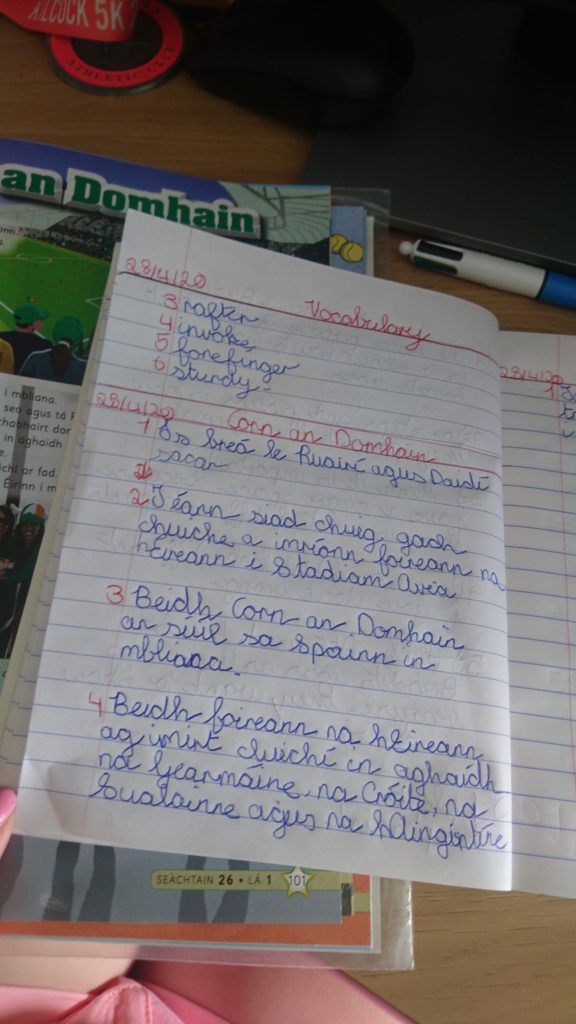 KILCOCK 5K
ATHLETIC CLUB
an Domhain
i mbliana.
seo agus tá
thabhairt dar
in aghaidh
ichí ar fad.
Éirinn i m
28/4/20 Vocabulary
3 rafter
4 invoke
5 forefinger
6 sturdy
28/4/20 Corn an Domhain
1 Is breá le Ruairí agus Daidí
sacar
2 Téann siad chuig gach
cluiche a imríonn foireann na
hÉireann i Stadiam Aviva
3 Beidh Corn an Domhain
ar siúl sa Spáinn in
mbliana.
4 Beidh foireann na hÉireann
ag imirt cluichí in aghaidh
na Gearmáine, na Cróite, na
Sualainne agus na hAirgintíne
28/4/20
1
SEACHTAIN 26 • LÁ 1 101